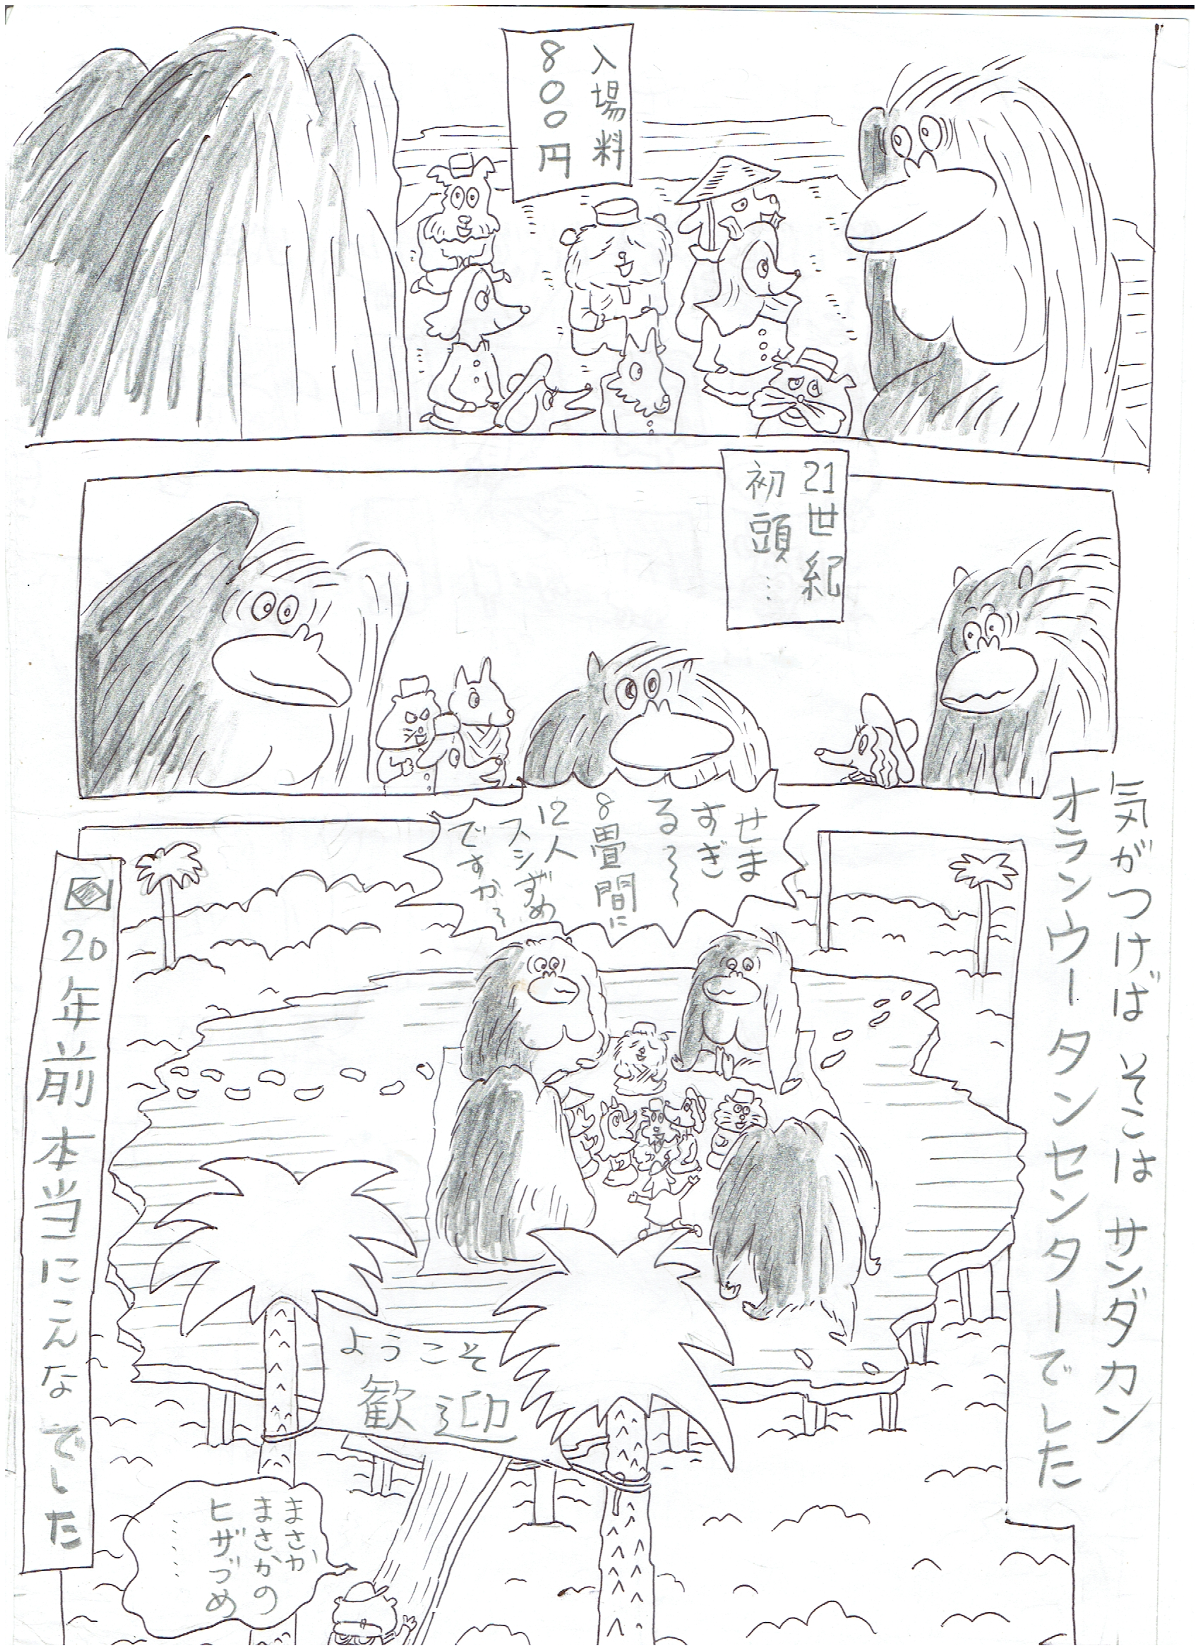 入場料
800円
21世紀
初頭…
せま
すぎ
る〜〜
8畳間に
12人
スシずめ
ですか〜
気がつけば そこは サンダカン
オランウータンセンターでした
20年前本当にこんなでした
ようこそ
歓迎
まさか
まさかの
ヒザづめ
……